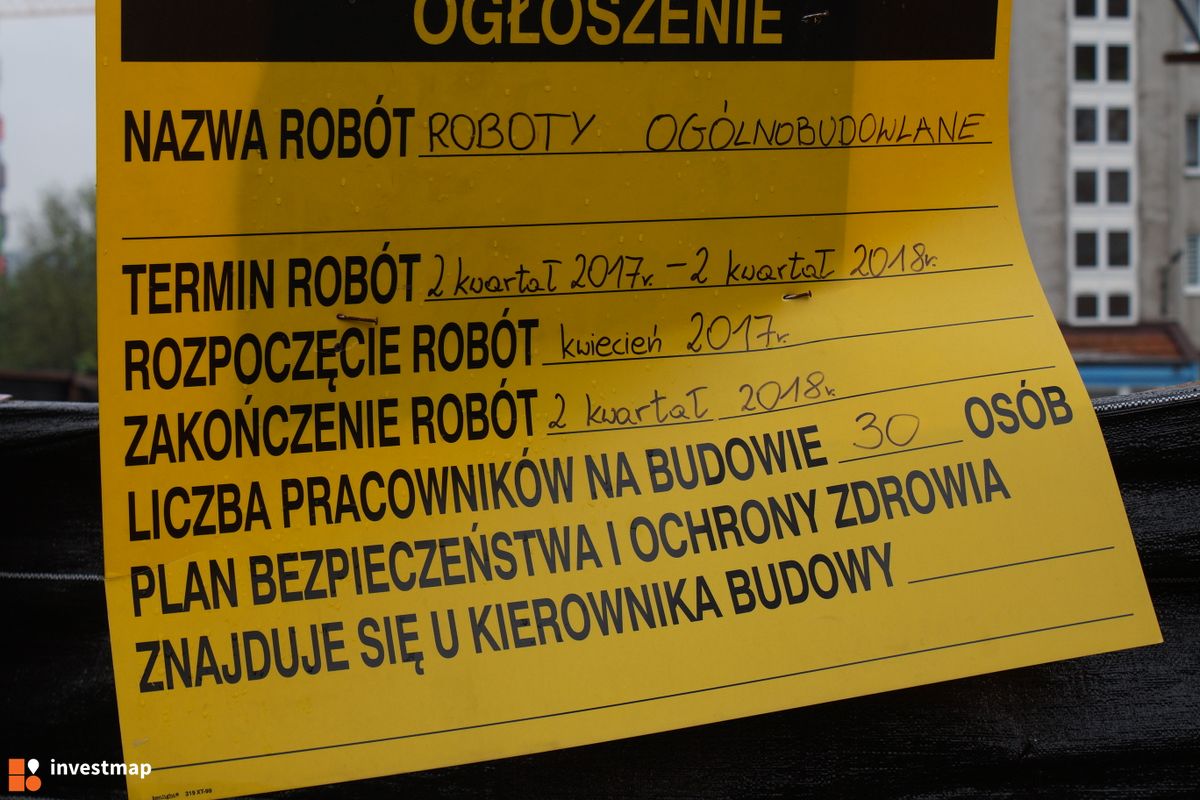 OGŁOSZENIE
NAZWA ROBÓT ROBOTY OGÓLNOBUDOWLANE
TERMIN ROBÓT 2 kwartał 2017r. - 2 kwartał 2018r.
ROZPOCZĘCIE ROBÓT kwiecień 2017r.
ZAKOŃCZENIE ROBÓT 2 kwartał 2018r.
LICZBA PRACOWNIKÓW NA BUDOWIE 30 OSÓB
PLAN BEZPIECZEŃSTWA I OCHRONY ZDROWIA
ZNAJDUJE SIĘ U KIEROWNIKA BUDOWY
investmap
319 XT-98